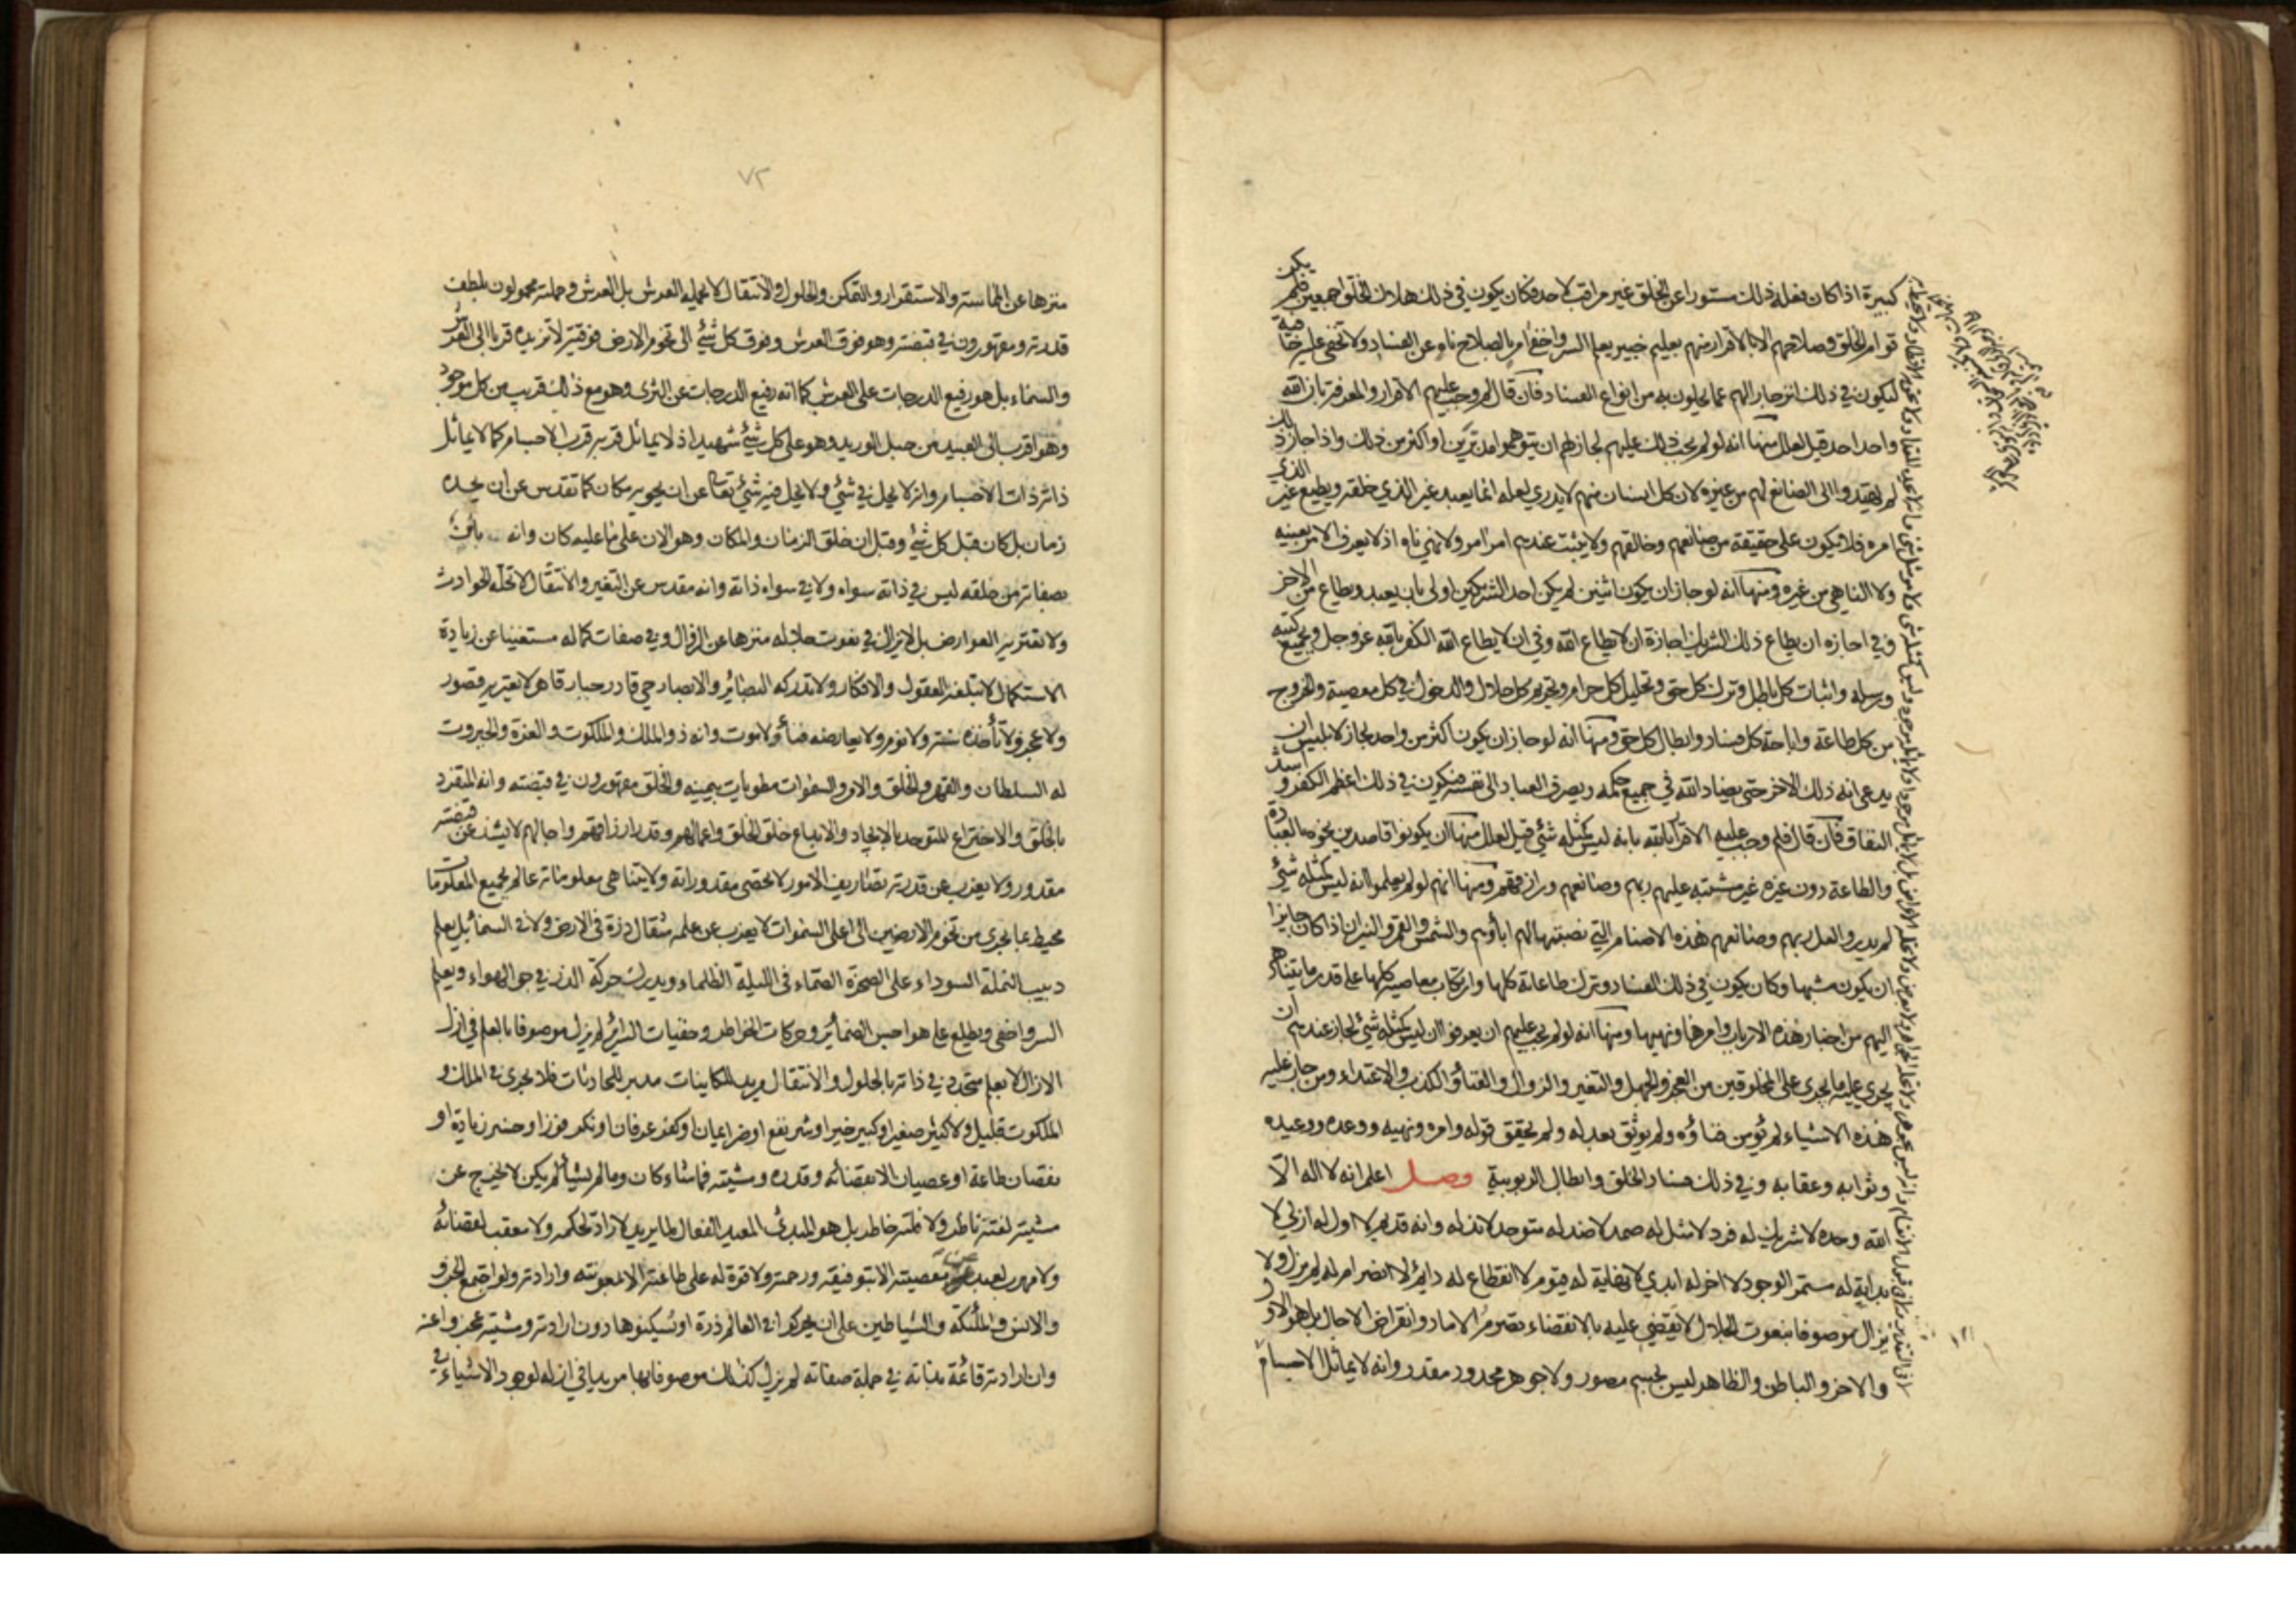 كبيرة اذا كان فعله ذلك مستورا عن الخلق غير مراقب لاحد فكان يكون في ذلك هلاك الخلق اجمعين فلم يكن
قوام الخلق وصلاحهم الا بالاقرار منهم بعليم خبير يعلم السر واخفى امر بالصلاح ناه عن الفساد ولا تخفى عليه خافية
ليكون في ذلك انزجار لهم عما يخلون به من انواع الفساد فان قال لم وجب عليهم الاقرار والمعرفة بان الله
واحد احد قيل لعلل منها انه لو لم يجب ذلك عليهم لجاز لهم ان يتوهموا مدبرين او اكثر من ذلك واذا جاز ذلك
لم يهتدوا الى الصانع لهم من غيره لان كل انسان منهم لا يدري لعله انما يعبد غير الذي خلقه ويطيع غير الذي
امره فلا يكون على حقيقة من صانعهم وخالقهم ولا يثبت عندهم امر امر ولا نهي ناه اذ لا يعرف الامر بعينه
ولا الناهي من غيره ومنها انه لو جاز ان يكون اثنين لم يكن احد الشريكين اولى بان يعبد ويطاع من الاخر
وفي اجازة ان يطاع ذلك الشريك اجازة ان لا يطاع الله وفي ان لا يطاع الله الكفر بالله عز وجل وبجميع كتبه
ورسله واثبات كل باطل وترك كل حق وتحليل كل حرام وتحريم كل حلال والدخول في كل معصية والخروج
من كل طاعة واباحة كل فساد وابطال كل حق ومنها انه لو جاز ان يكون اكثر من واحد لجاز لابليس ان
يدعي انه ذلك الاخر حتى يضاد الله في جميع حكمه ويصرف العباد الى نفسه فيكون في ذلك اعظم الكفر واشد
النفاق فان قال فلم وجب عليهم الاقرار لله بانه ليس كمثله شئ قيل لعلل منها ان يكونوا قاصدين نحوه بالعبادة
والطاعة دون غيره غير مشتبه عليهم ربهم وصانعهم ورازقهم ومنها انهم لو لم يعلموا انه ليس كمثله شئ
لم يدروا لعل ربهم وصانعهم هذه الاصنام التي نصبتها لهم اباؤهم والشمس والقمر والنيران اذا كان جايزا
ان يكون مشبها وكان يكون في ذلك الفساد وترك طاعاته كلها وارتكاب معاصيه كلها على قدر ما يتناهى
اليهم من اخبار هذه الارباب وامرها ونهيها ومنها انه لو لم يجب عليهم ان يعرفوا ان ليس كمثله شئ لجاز عندهم ان
يجري عليه ما يجري على المخلوقين من العجز والجهل والتغير والزوال والفناء والكذب والاعتداء ومن جاز عليه
هذه الاشياء لم يؤمن فناؤه ولم يوثق بعدله ولم يحقق قوله وامره ونهيه ووعده ووعيده
وثوابه وعقابه وفي ذلك فساد الخلق وابطال الربوبية وصل اعلم انه لا اله الا
الله وحده لا شريك له فرد لا مثل له صمد لا ضد له متوحد لا ند له وانه قديم لا اول له ازلي لا
بداية له مستمر الوجود لا اخر له ابدي لا نهاية له قيوم لا انقطاع له دائم لا انصرام له لم يزل ولا
يزال موصوفا بنعوت الجلال لا يقضي عليه بالانقضاء تصرم الاماد وانقراض الاجال بل هو الاول
والاخر والباطن والظاهر ليس بجسم مصور ولا جوهر محدود مقدر وانه لا يماثل الاجسام
٧٢
منزها عن المماسة والاستقرار والتمكن والحلول والانتقال لا يحمله العرش بل العرش وحملته محمولون بلطف
قدرته ومقهورون في قبضته وهو فوق العرش وفوق كل شئ الى تخوم الارض فوقية لا تزيده قربا الى العرش
والسماء بل هو رفيع الدرجات على العرش كما انه رفيع الدرجات عن الثرى وهو مع ذلك قريب من كل موجود
وهو اقرب الى العبيد من حبل الوريد وهو على كل شئ شهيد اذ لا يماثل قربه قرب الاجسام كما لا يماثل
ذاته ذات الاجسام وانه لا يحل في شئ ولا يحل فيه شئ تعالى عن ان يحويه مكان كما تقدس عن ان يحده
زمان بل كان قبل كل شئ وقبل ان خلق الزمان والمكان وهو الان على ما عليه كان وانه بائن
بصفاته من خلقه ليس في ذاته سواه ولا في سواه ذاته وانه مقدس عن التغير والانتقال لا تحله الحوادث
ولا تعتريه العوارض بل لا يزال في نعوت جلاله منزها عن الزوال وفي صفات كماله مستغنيا عن زيادة
الاستكمال لا تبلغه العقول والافكار ولا تدركه البصائر والابصار حي قادر جبار قاهر لا يعتريه قصور
ولا عجز ولا تأخذه سنة ولا نوم ولا يعارضه فناء ولا موت وانه ذو الملك والملكوت والعزة والجبروت
له السلطان والقهر والخلق والامر والسموات مطويات بيمينه والخلق مقهورون في قبضته وانه المتفرد
بالخلق والاختراع المتوحد بالايجاد والابداع خلق الخلق واعمالهم وقدر ارزاقهم واجالهم لا يشذ عن قبضته
مقدور ولا يعزب عن قدرته تصاريف الامور لا تحصى مقدوراته ولا يتناهى معلوماته عالم بجميع المعلومات
محيط بما يجري من تخوم الارضين الى اعلى السموات لا يعزب عن علمه مثقال ذرة في الارض ولا في السماء بل يعلم
دبيب النملة السوداء على الصخرة الصماء في الليلة الظلماء ويدرك حركة الذر في جو الهواء ويعلم
السر واخفى ويطلع على هواجس الضمائر وحركات الخواطر وخفيات السرائر لم يزل موصوفا بالعلم في ازل
الازال لا بعلم متجدد في ذاته بالحلول والانتقال مريد للكاينات مدبر للحادثات فلا يجري في الملك و
الملكوت قليل ولا كثير صغير او كبير خير او شر نفع او ضر ايمان او كفر عرفان او نكر فوز او خسر زيادة او
نقصان طاعة او عصيان الا بقضائه وقدره ومشيته فما شاء كان وما لم يشأ لم يكن لا يخرج عن
مشيته لفتة ناظر ولا فلتة خاطر بل هو المبدئ المعيد الفعال لما يريد لا راد لحكمه ولا معقب لقضائه
ولا مهرب لعبد عن معصيته الا بتوفيقه ورحمته ولا قوة له على طاعته الا بمعونته وارادته ولو اجتمع الجن و
والانس والملئكة والشياطين على ان يحركوا في العالم ذرة او يسكنوها دون ارادته ومشيته عجزوا عنه
وان ارادته قائمة بذاته في جملة صفاته لم يزل كذلك موصوفا بها مريدا في ازله لوجود الاشياء في